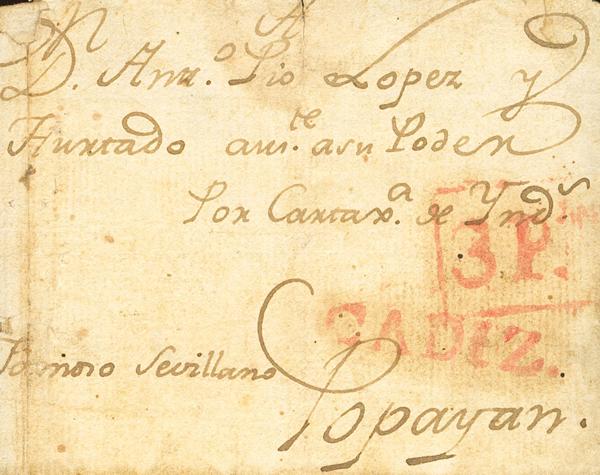 A
D. Ant.º Pio Lopez y
Hurtado aus.te a su Poder
Por Cartax.a de Ynd.s
3P.
CADIZ.
Sevillano
Popayan.